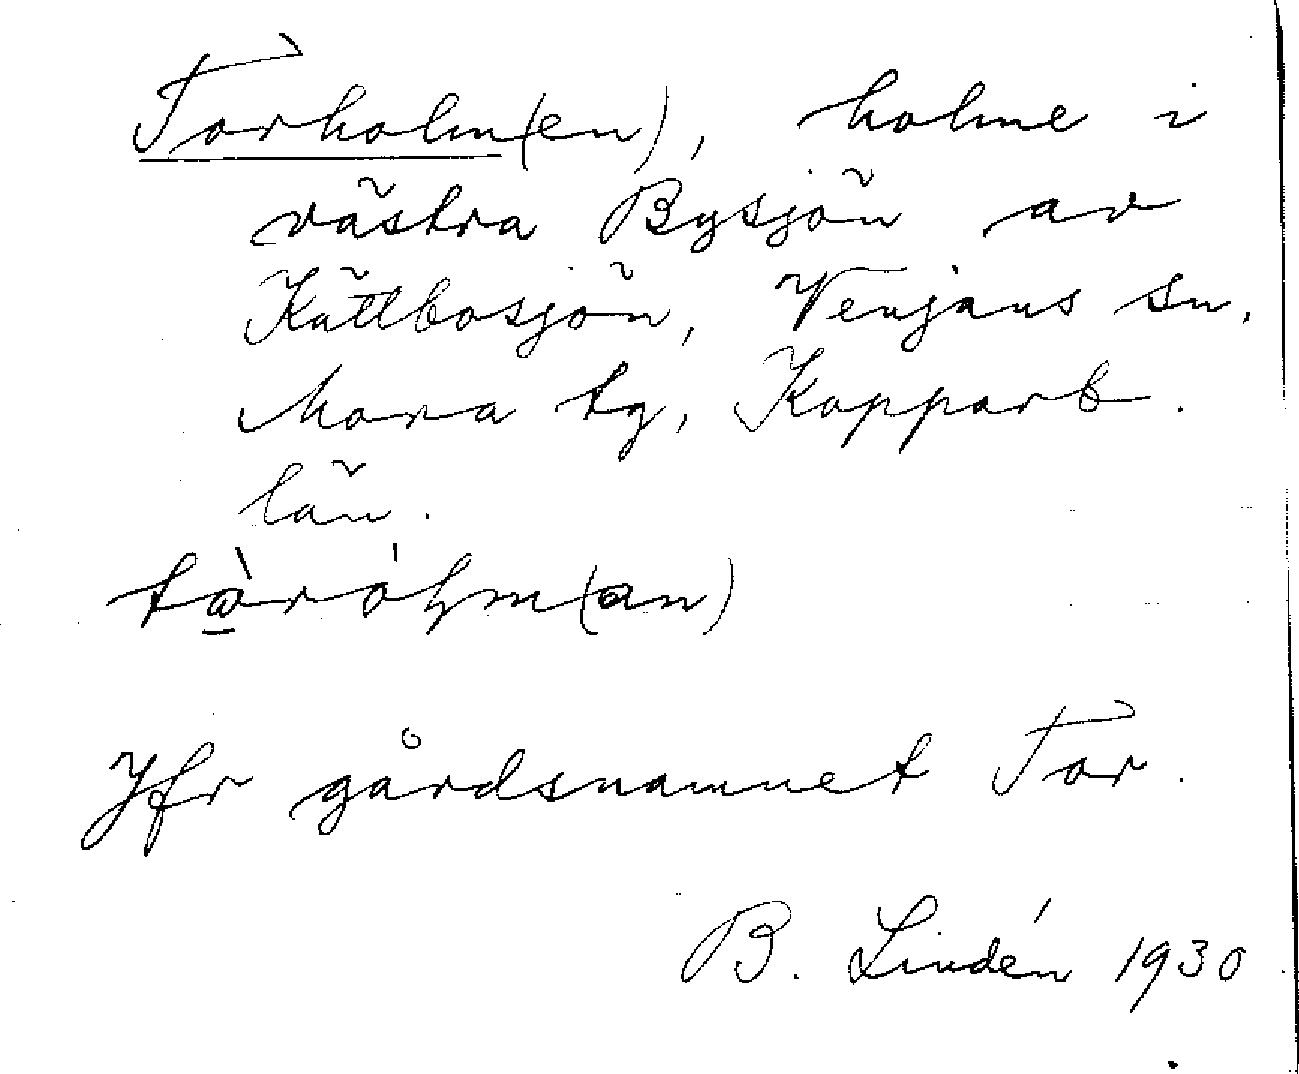 Torholm(en), holme i
västra Bysjön av
Kättbosjön, Venjans sn,
Mora tg, Kopparb.
län.
tò̠rólm(an)
Jfr gårdsnamnet Tor.
B. Lindén 1930